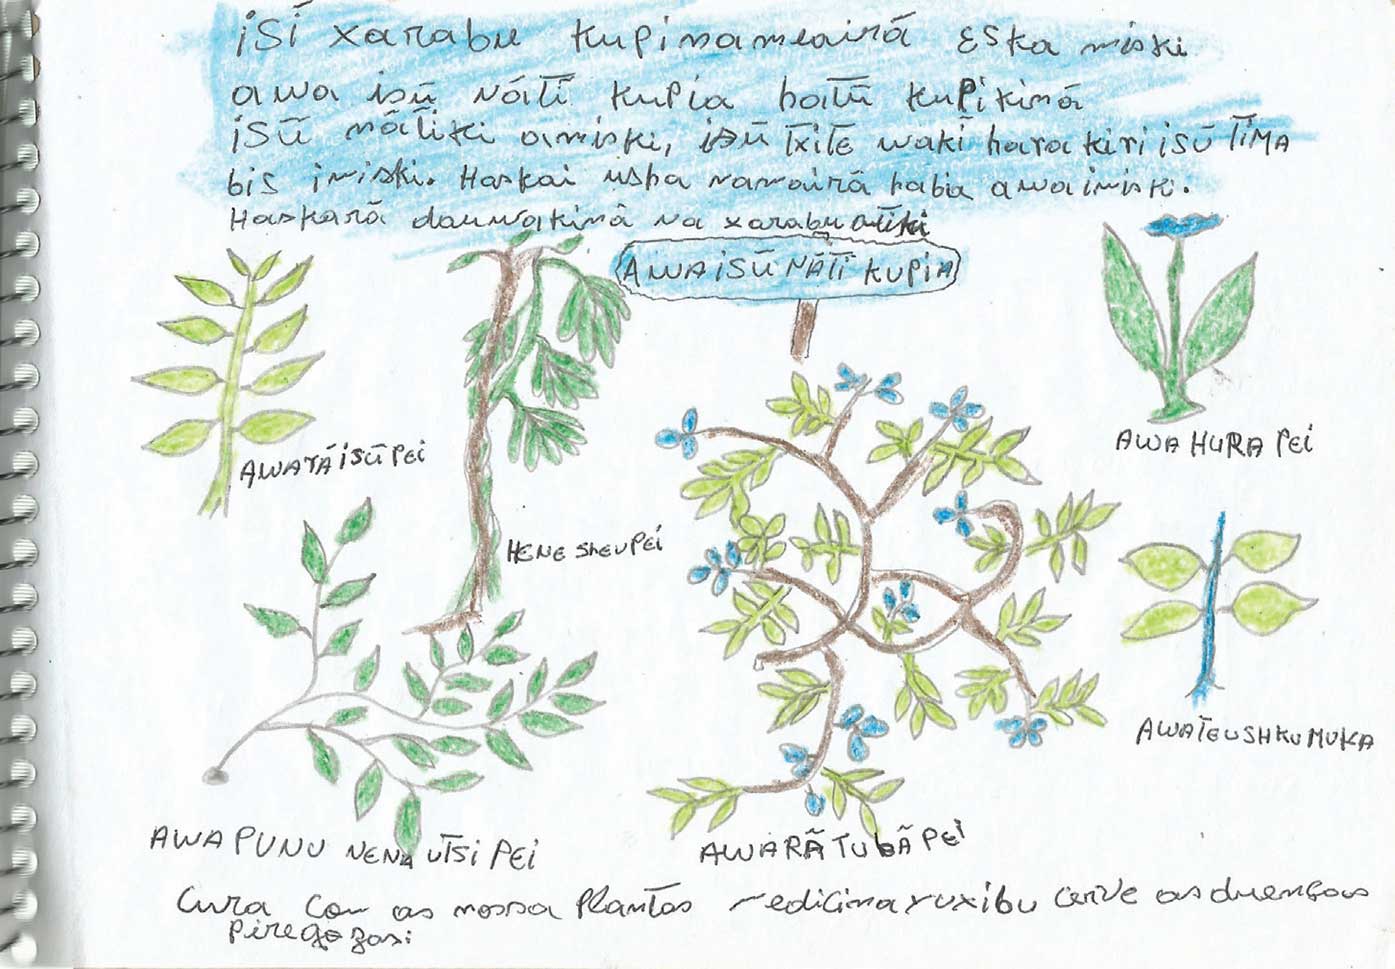 isí xarabu kupimameairã eska miski
awa isũ nãtĩ kupia hatũ kupikinã
isũ nãtiki amiski, isũ txitẽ wakĩ harakiri isũ TĩMA
bis imiski. Haskai usha namairã habia awa imiski.
Haskarã dauwakinã na xarabu atiki
AWA ISŨ NÃTĨ KUPIA
AWARÁ ISŨ PEI
AWA HURA PEI
HENE SHEU PEI
AWATEUSHKUMUKA
AWA PUNU NENA UTSI PEI
AWARÃ TUBÃ PEI
Cura com as nossa Plantas medicina yuxibu cerve as duenças
piregozasi